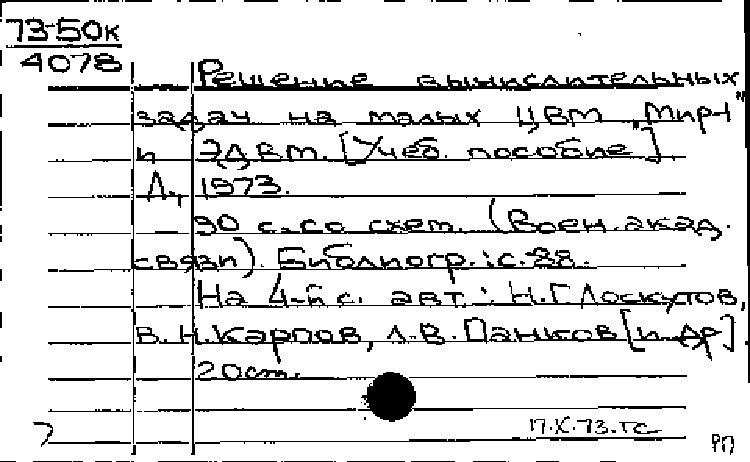 73-50к
4078
Решение вычислительных
задач на малых ЦВМ „Мир-1"
и ЭДВМ. [Учеб. пособие]
Л., 1973.
90 с. со схем. (Воен. акад.
связи). Библиогр.: с. 88.
На 4-й с. авт.: Н.Г. Лоскутов,
В.Н. Карпов, Л.В. Панков [и др].
20 см.
17.X.73. гс
РП